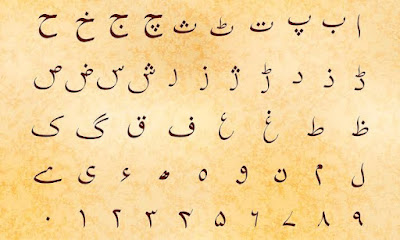 ا ب پ ت ٹ ث چ ج خ ح
ڈ ذ د ڑ ژ ز ر ش س ض ص
ظ ط غ ع ف ق گ ک
ل م ن و ہ ھ ء ی ے
۹ ۸ ۷ ۶ ۵ ۴ ۳ ۲ ۱ ۰